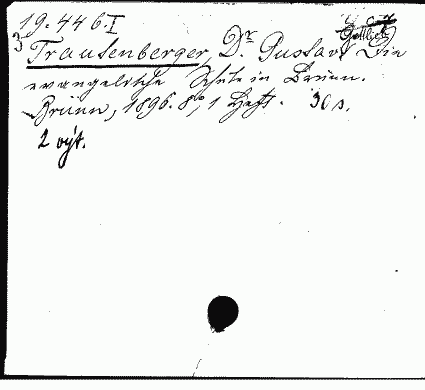 19.446.I
3
Trautenberger, Dr. Gustav Gottlieb Die
evangelische Schule in Brünn.
Brünn, 1896. 8°, 1 Heft. 30 s.
2 výt.